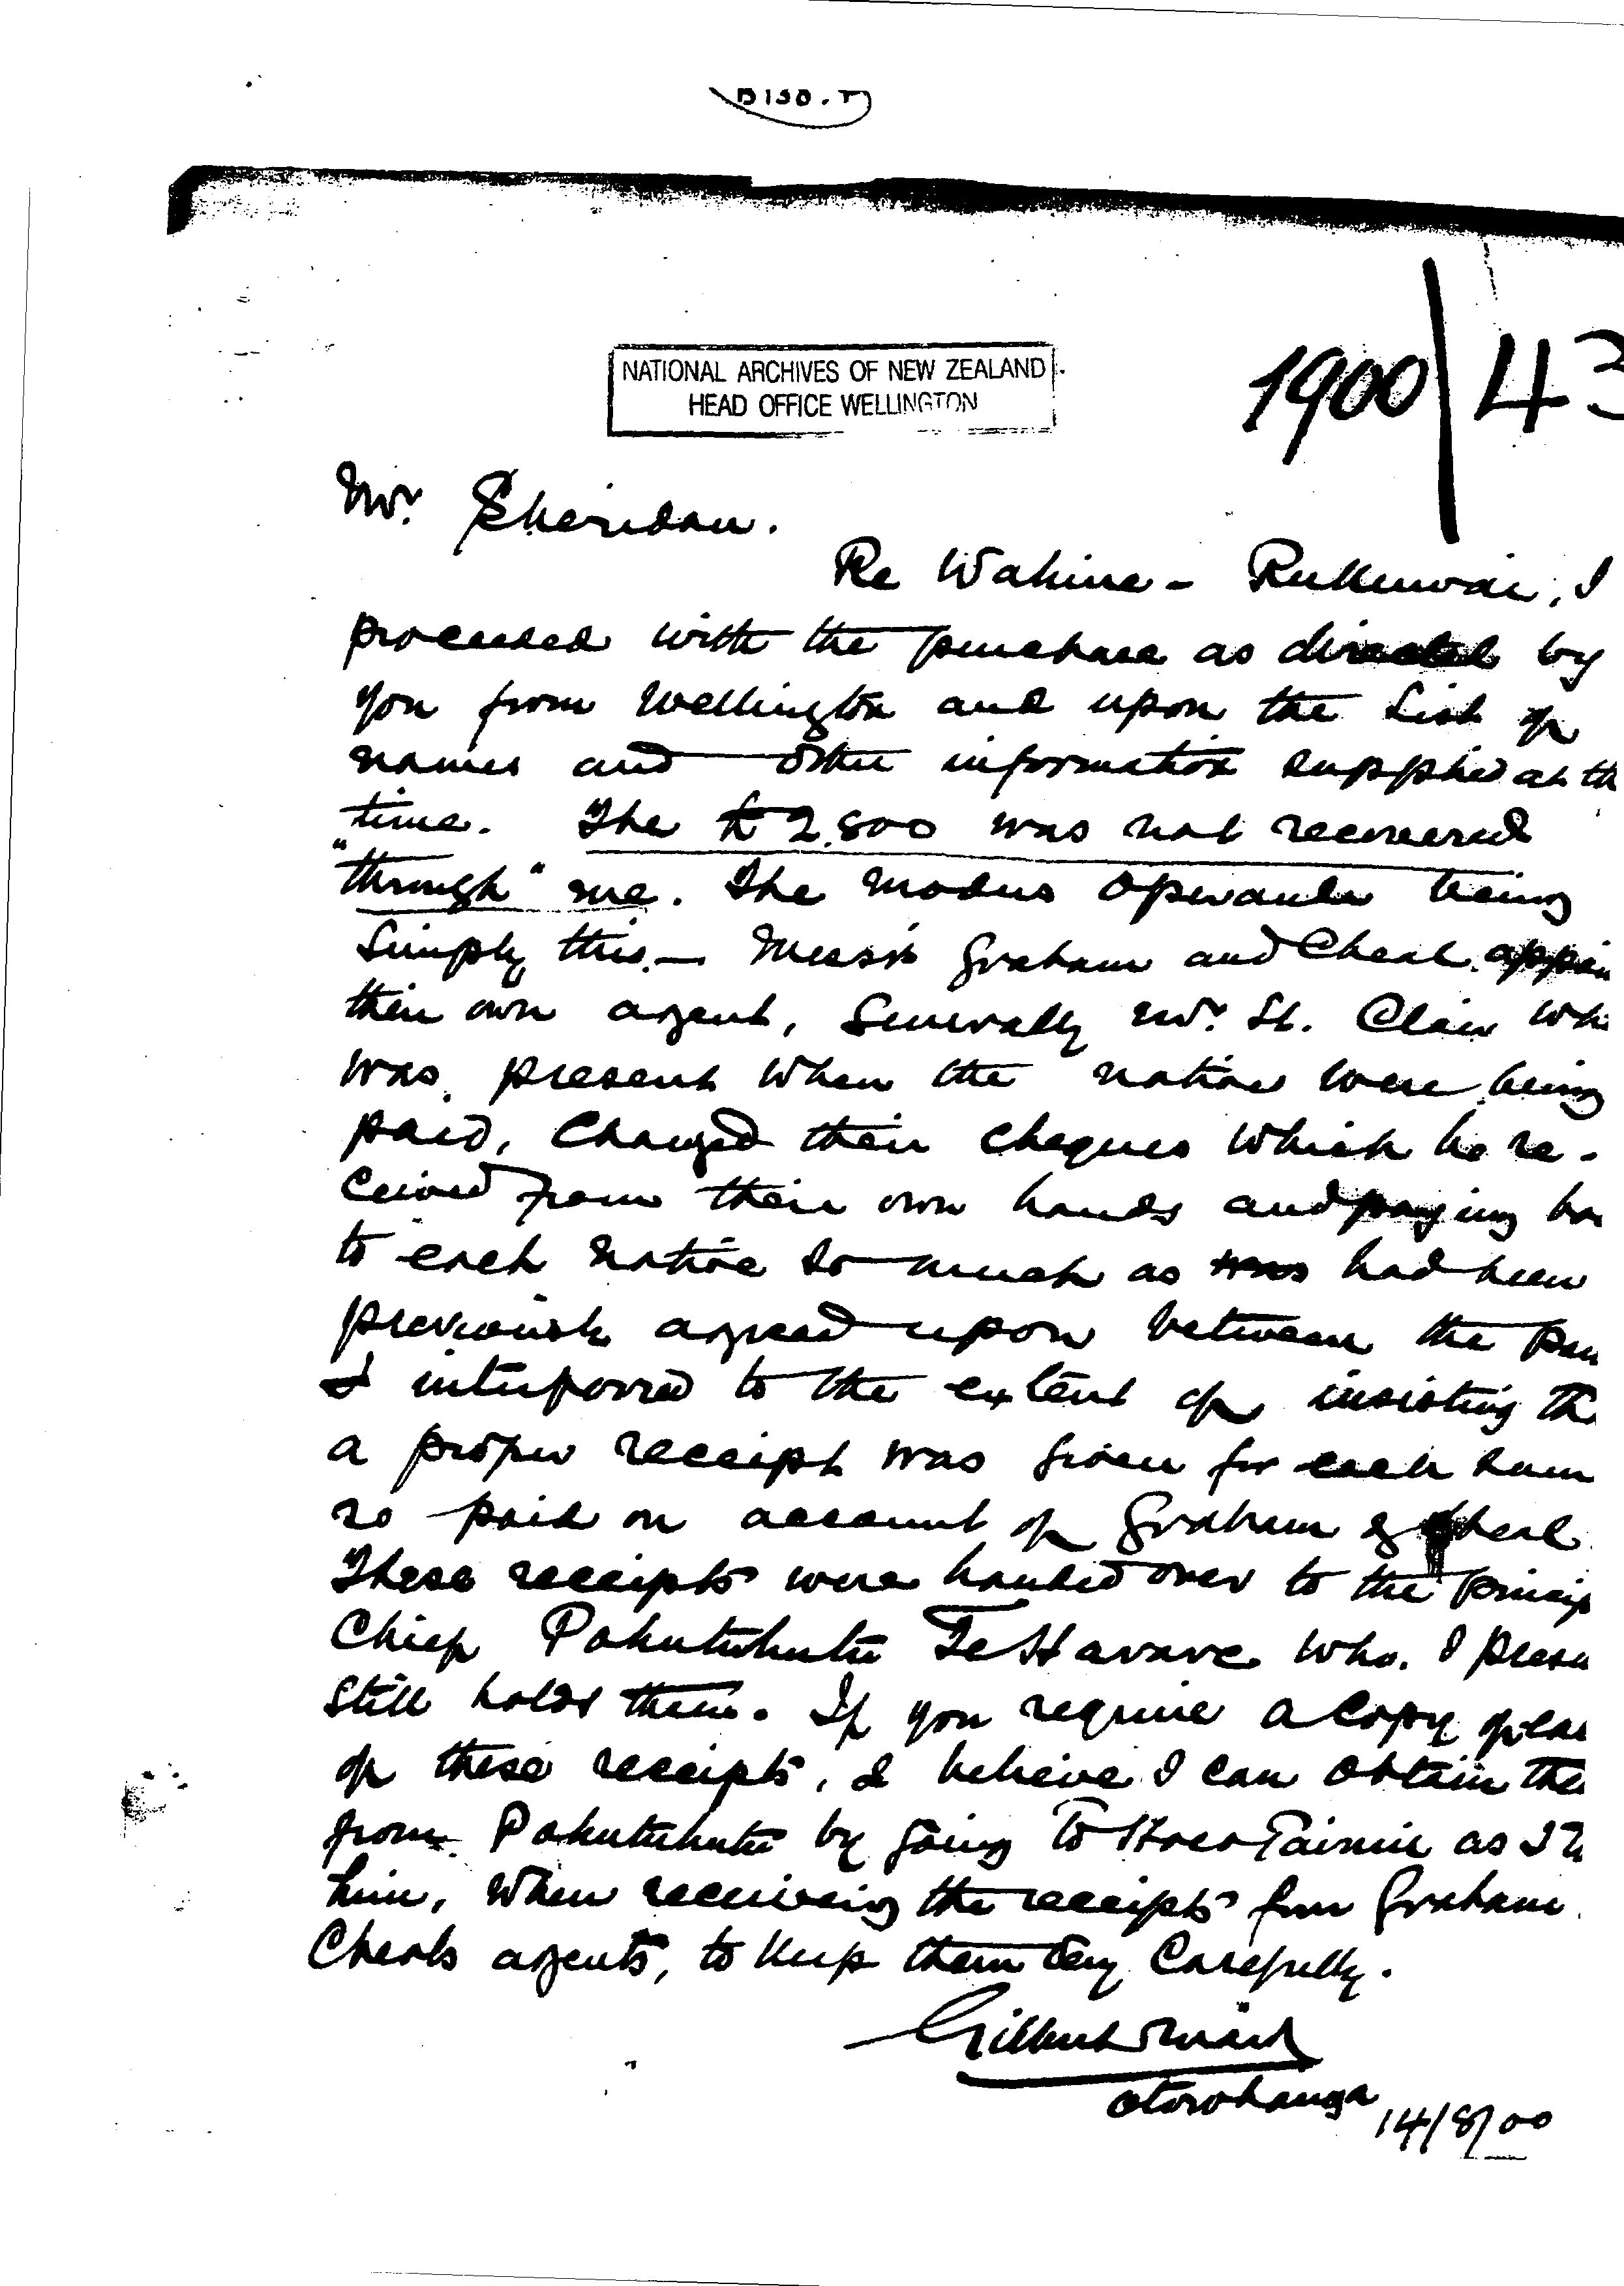 D130.T
NATIONAL ARCHIVES OF NEW ZEALAND
HEAD OFFICE WELLINGTON
1900/43
Mr. Sheridan.
Re Wahine - I
proceeded with the purchase as directed by
you from Wellington and upon the List of
names and other information supplied at th
time. The £2.800 was not recovered
"through" me. The modus operandi being
Simply this - Messrs Graham and Cheal appoin
their own agent, Generally Mr. St. Clair wh
was present when the natives were being
paid, Changed their cheques which he re-
ceived from their own hands and paying ba
to each native so much as was had been
previously agreed upon between the par
I interferred to the extent of insisting th
a proper receipt was given for each sum
so paid on account of Graham & Cheal.
These receipts were handed over to the princip
Chief Pakutuhutu Te Harare who. I presu
still holds them. If you require a Copy
of these receipts, I believe I can obtain the
from Pahutuhutu by going to as I
him, when receiving the receipts from Graham
Cheals agents, to keep them very Carefully.
Gilbert Mair
Otorohanga
14/8/00